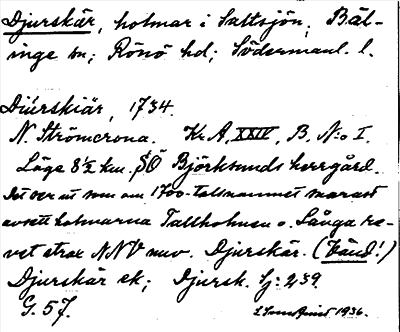 Djurskär, holmar i Saltsjön, Bäl-
inge sn; Rönö hd; Södermanl. l.
Diurskiär, 1734.
N. Strömcrona. Kr. A, XXIV, B. N:o I.
Läge 8½ km. SÖ Björksunds herrgård.
Det ser ut som om 1700-talsnamnet snarast
avsett holmarna Tallholmen o. Långa re-
vet strax NNV nuv. Djurskär. (Vänd!)
Djurskär ek; Djursk. Gj: 239.
G. 57. 1936.